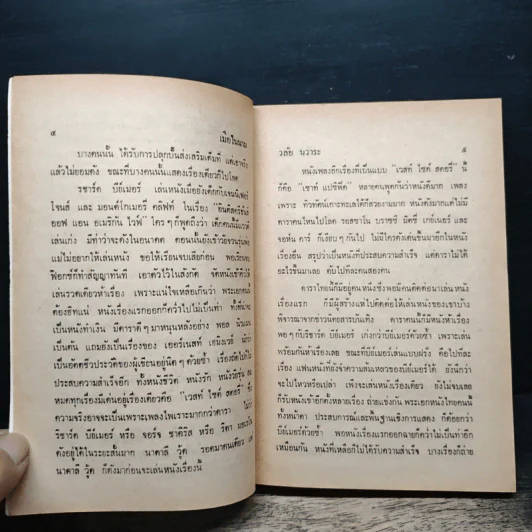 ๔ เมียในนาม
บางคนนั้น ได้รับการปลุกปั้นส่งเสริมเต็มที่ แต่เอาจริง
แล้วไม่ยอมดัง ขณะที่บางคนนั้นแสดงเรื่องเดียวก็ไปโลด
ริชาร์ด บีย์เมอร์ เล่นหนังเมื่อยังเด็กกับเจนนิเฟอร์
โจนส์ และ มอนต์โกเมอรี่ คลิฟท์ ในเรื่อง "อินดิสครีชั่น
ออฟ แอน อเมริกัน ไวฟ์" ใคร ๆ ก็พูดถึงว่า เด็กคนนั้น
เล่นเก่ง มีท่าว่าจะดังในอนาคต ตอนนั้นยังเข้าวัยรุ่น
แม่ไม่อยากให้เล่นหนัง ขอให้เรียนจบเสียก่อน
ฟ็อกซ์ก็ทำสัญญาทันที เอาตัวไว้ในสังกัด จัดหนังให้
เล่นรวดเดียวห้าเรื่อง เพราะแน่ใจเหลือเกินว่า พระเอกคนนี้
ต้องฮิตแน่ หนังเรื่องแรกออกก็ดีกว่าไม่เป็นท่า ทั้งที่
เป็นหนังทำเงิน มีดาราดี ๆ มาหนุนหลังอย่าง พอล
เป็นต้น แถมยังเป็นเรื่องของ เออร์เนสท์ เฮ็มมิงเวย์
เป็นอัตชีวประวัติของผู้เขียนอยู่นิด ๆ ด้วยซ้ำ เรื่องต่อไป
ประสบความสำเร็จอีก ทั้งหนังชีวิต หนังรัก หนังวัยรุ่น
หมดทุกเรื่องมีเด่นอยู่เรื่องเดียวคือ "เวสท์ ไซด์ สตอรี่"
ความจริงอาจจะเป็นเพราะเพลงไพเราะมากกว่าดารา
ริชาร์ด บีย์เมอร์ หรือ จอร์จ ชาคิริส หรือ ริตา
ดังอยู่ได้ในระยะสั้นมาก นาตาลี วู้ด รอดมาคนเดียว
นาตาลี วู้ด ก็ดังมาก่อนจะเล่นหนังเรื่องนี้
วลัย นวาระ ๕
หนังเพลงอีกเรื่องที่เป็นแบบ "เวสท์ ไซด์ สตอรี่" นี้
ก็คือ "เซาท์ แปซิฟิค" หลายคนพูดกันว่าหนังดีมาก เพลง
เพราะ ทิวทัศน์เกาะทะเลใต้ก็สวยงามมาก หนังดังมากแต่ไม่มี
ดาราคนไหนไปโลด รอสซาโน บราซซี่ มิตซี่ เกย์เนอร์ และ
จอห์น คาร์ ก็เงียบ ๆ กันไป ไม่มีใครดังเด่นขึ้นมาอีกในหนัง
เรื่องอื่น สรุปว่าเป็นหนังที่ประสบความสำเร็จ แต่ดาราไม่ได้
อะไรขึ้นมาเลย ดับไปทีละคนสองคน
ดาราไทยนี้ก็มีอยู่คนหนึ่งซึ่งพอมีคนติดต่อมาเล่นหนัง
เรื่องแรก ก็มีผู้สร้างแห่ไปติดต่อให้เล่นหนังของเขาบ้าง
พิจารณาจากข่าวนิตยสารบันเทิง ดาราคนนั้นก็มีหนังห้าเรื่อง
พอ ๆ กับริชาร์ด บีย์เมอร์ เก่งกว่าบีย์เมอร์ด้วยซ้ำ เพราะเล่น
พร้อมกันห้าเรื่องเลย ขณะที่บีย์เมอร์เล่นแบบฝรั่ง คือไปทีละ
เรื่อง แฟนหนังที่งงง่าความล้มเหลวของบีย์เมอร์ได้ ยังนึกว่า
จะไปไหวหรือเปล่า เพิ่งจะเล่นหนังเรื่องเดียว ยังไม่จบเลย
ก็รับหนังเข้าอีกตั้งหลายเรื่อง ถ่ายแข่งกัน พระเอกหนังไทยคนนี้
ทั้งหน้าตา ประสบการณ์และพื้นฐานเชิงการแสดง ก็ด้อยกว่า
บีย์เมอร์ด้วยซ้ำ พอหนังเรื่องแรกออกฉายก็ดีกว่าไม่เป็นท่าอีก
เหมือนกัน หนังที่เหลือก็ไม่ได้รับความสำเร็จ บางเรื่องก็ถ่าย